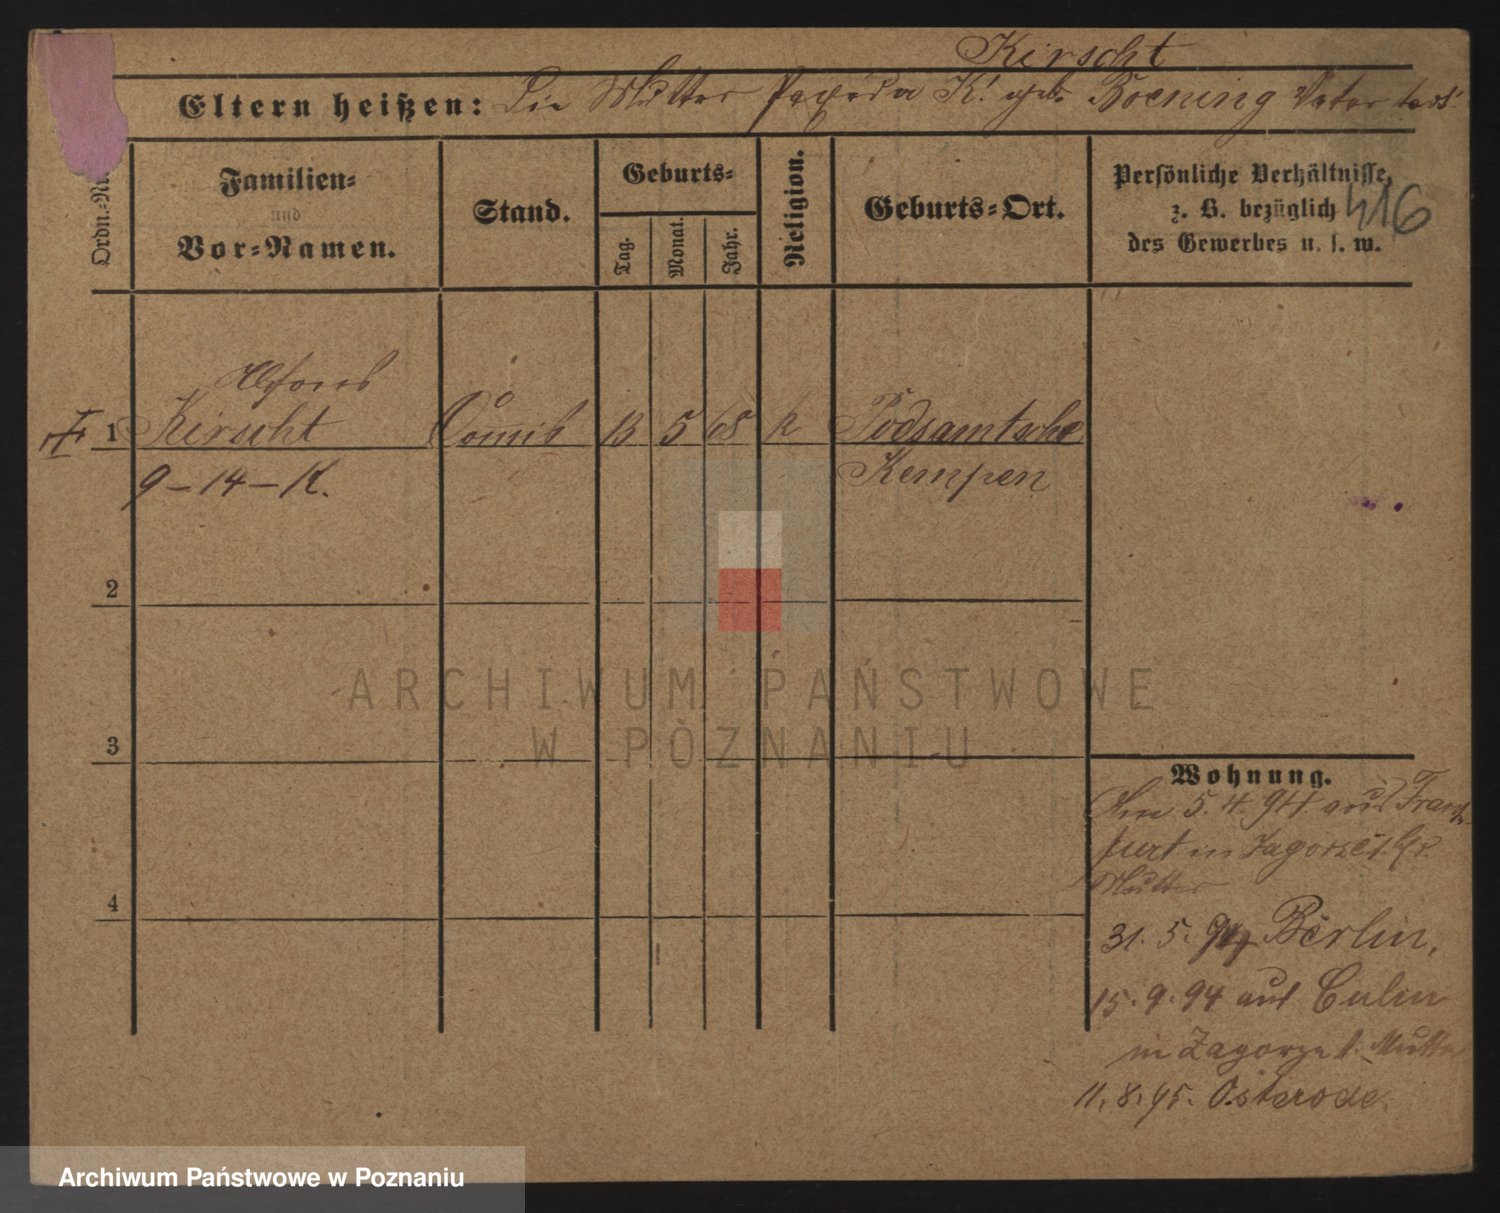 Kirscht
Eltern heißen: Die Mutter K. geb. Boening Vater todt
Ordn.-Nr.
Familien-
und
Vor-Namen.
Stand.
Geburts-
Tag.
Monat.
Jahr.
Religion.
Geburts-Ort.
Persönliche Verhältnisse,
z. B. bezüglich
des Gewerbes u. s. w.
416
Alfons
1 Kirscht Comis 13 5 68 k Podsamtsche
9-14-K. Kempen
2
3
4
Wohnung.
Am 5.4.94 aus Frank-
furt in Zagorze
Mutter
31.5.94 Berlin,
15.9.94 aus Culm
in Zagorze b. Mutter
11.8.95. Osterode.
ARCHIWUM PAŃSTWOWE
W POZNANIU
Archiwum Państwowe w Poznaniu